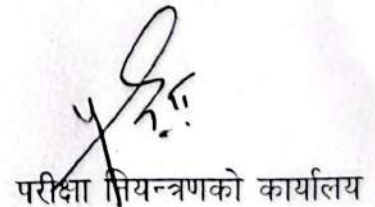 परीक्षा नियन्त्रणको कार्यालय